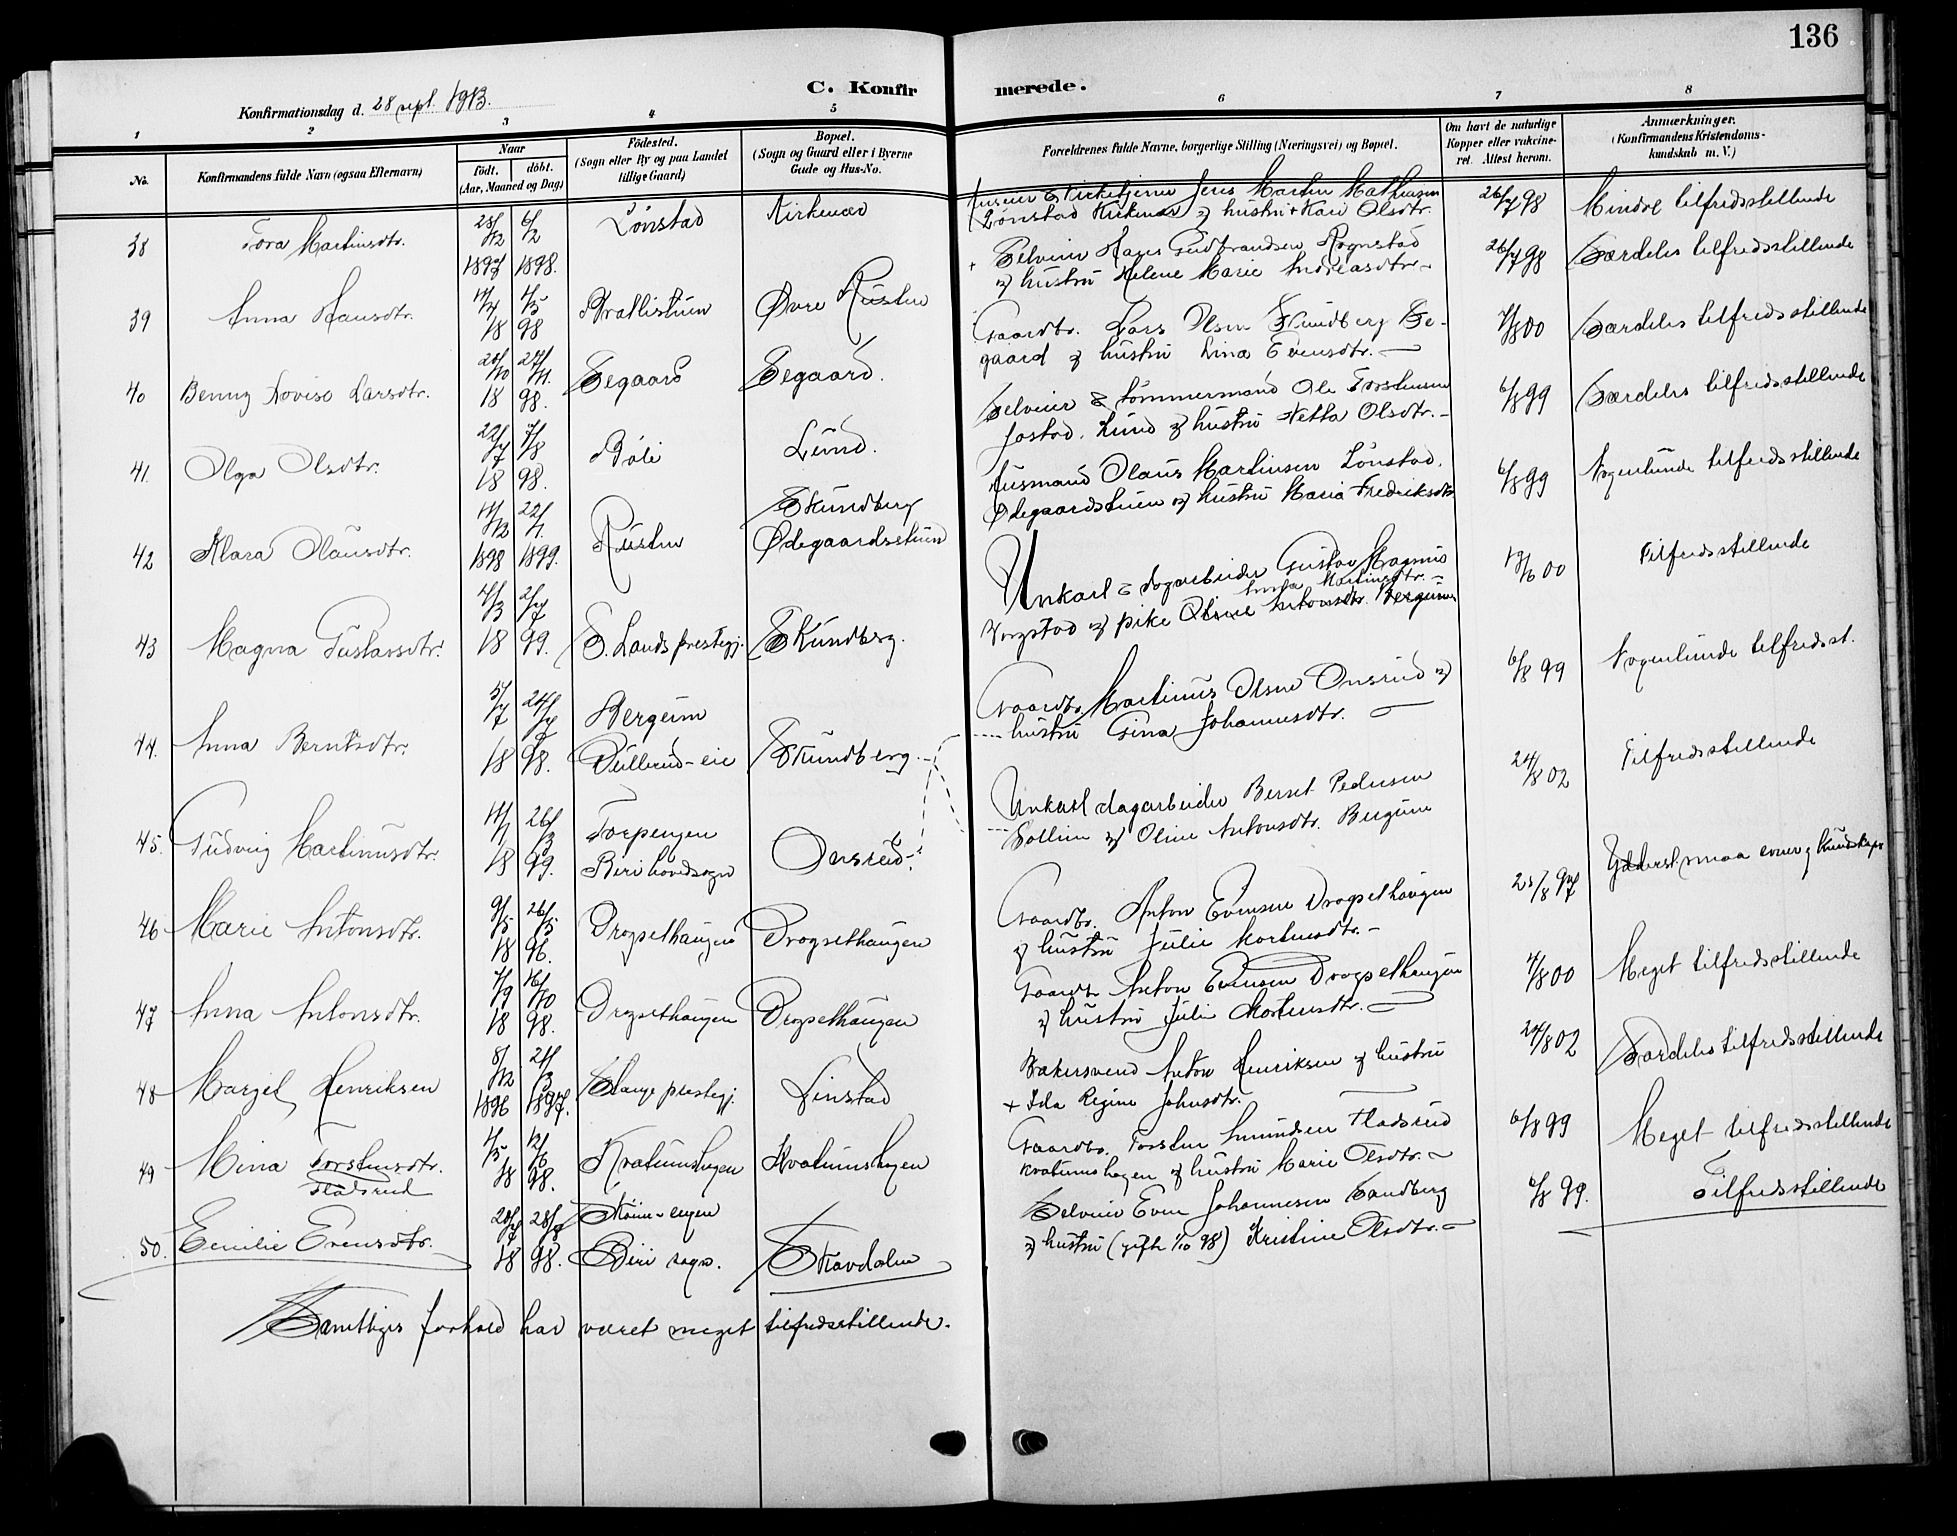 136
C. Konfirmerede.
Konfirmationsdag d. 28 sept. 1913.
1 2 3 4 5 6 7 8
No.
Konfirmandens fulde Navn (ogsaa Efternavn)
Naar
födt. döbt.
(Aar, Maaned og Dag)
Födested.
(Sogn eller By og paa Landet
tillige Gaard)
Bopæl.
(Sogn og Gaard eller i Byerne
Gade og Hus-No.
Forældrenes fulde Navne, borgerlige Stilling (Næringsvei) og Bopæl.
Om havt de naturlige
Kopper eller vakcine-
ret. Attest herom.
Anmærkninger.
(Konfirmandens Kristendoms-
kundskab m. V.)
38 Tora Martinsdtr. 25/12 1897 6/2 1898. Lönstad Kirkenær
Huseier & Kirketjener Jens Martin Mathiesen
Lönstad Kirkenær & hustru + Kari Olsdtr.
26/7 98 Mindre tilfredsstillende
39 Anna Hansdtr. 14/4 1/5 18 98 Bratlistuen Øvre Rusten
+ Selveier Hans Gudbrandsen Rognstad
& hustru Helene Marie Andreasdtr.
26/7 98 Særdeles tilfredsstillende
40 Benny Lovise Larsdtr. 20/10 27/11. 18 98. Segaard Segaard.
Gaardbr. Lars Olsen Skundberg Se-
gaard & hustru Lina Evensdtr.
7/8 00 Særdeles tilfredsstillende
41. Olga Olsdtr. 22/7 7/8 18 98. Böle Lund.
Selveier & Tömmermand Ole Torstensen
Jostad, Lund & hustru Netta Olsdtr.
6/8 99 Særdeles tilfredsstillende
42 Klara Olausdtr. 14/12 1898 22/1. 1899. Rusten Skundberg
Ødegaardsstuen
Husmand Olaus Martinsen Lönstad,
Ødegaardstuen & hustru Maria Fredriksdtr
6/8 99 Nogenlunde tilfredsstillende
43 Magna Gustavsdtr. 4/3 2/7 18 99. S. Lands prestegj. Skundberg.
Unkarl & dagarbeider Gustav Magnus
Martinsdtr.
& pike Oline Antonsdtr. Bergum
19/6 00 Tilfredsstillende
44. Anna Berntsdtr. 5/7 24/7 18 98. Bergum
Sullerud-eie Skundberg
Gaardbr. Martinus Olsen Onsrud &
hustru Gina Johannesdtr.
6/8 99 Nogenlunde tilfredsst.
45. Gudvig Martinusdtr. 14/1 26/3 18 99. Torpengen
Biri hovedsogn Onsrud
Unkarl dagarbeider Bernt Pedersen
Sollien & Oline Antonsdtr. Bergum
24/8 02 Tilfredsstillende
46 Marie Antonsdtr. 9/5 26/5 18 96. Drogsethaugen Drogsethaugen
Gaardbr. Anton Evensen Drogsethaugen
& hustru Julie Mortensdtr.
25/8 97 Yderst smaa evner & Kundskaper
47 Anna Antonsdtr. 7/9 16/10 18 98. Drogsethaugen Drogsethaugen
Gaardbr. Anton Evensen Drogsethaugen
& hustru Julie Mortensdtr.
7/8 00 Meget tilfredsstillende
48 Margit Henriksen 8/12 1896 21/3 1897. Stange prestegj. Linstad
Bakersvend Anton Henriksen & hustru
+ Ida Regine Johnsdtr.
24/8 02 Særdeles tilfredsstillende
49 Mina Torstensdtr. 1/5 12/6 18 98. Kvatumshagen Kvatumshagen
Fladsrud
Gaardbr. Torsten Amundsen Fladsrud
Kvatumshagen & hustru Marie Olsdtr.
6/8 99 Meget tilfredsstillende
50. Emilie Evensdtr. 20/7 28/8 18 98. Biri sogn. Skavdalen
Selveier Even Johannesen Sandberg
& hustru (gifte 1/10 98) Kristine Olsdtr.
6/8 99. Tilfredsstillende
Samtliges forhold har været meget tilfredsstillende.